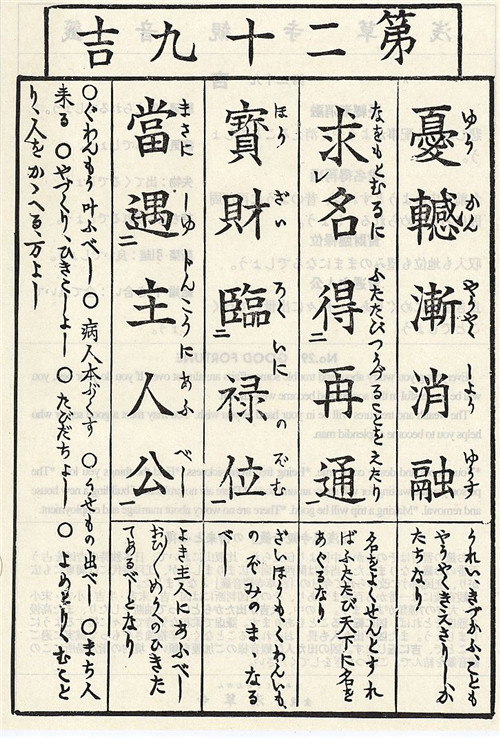 第二十九吉
憂轗漸消融
ゆう かん やうやく しよう ゆうす
求レ名得二再通一
なをもとむに ふたたびつうずることをえたり
寶財臨二禄位一
ほう ざい ろくいに のぞむ
當遇二主人公一
まさに しゆじんこうに あふべし
うれい、きづかふことも
やうやくきえさりしか
たちなり
名をよくせんとすれ
ばふたたび天下に名を
あぐるなり
ざいほうも、
のぞみのまゝなる
べし
よき主人にあふべし
人のひきた
てあるべきとなり
○ぐわんもう叶ふべし ○病人本ぶくす ○うせもの出べし ○まち人
来る ○やづくり、ひきこしよし ○たびだちよし ○よめどり、むこと
り、人をかゝへる、万よし